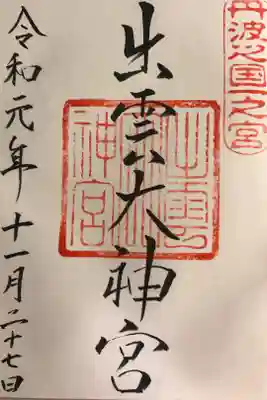 丹波之国一之宮
出雲大神宮
令和元年十一月二十七日